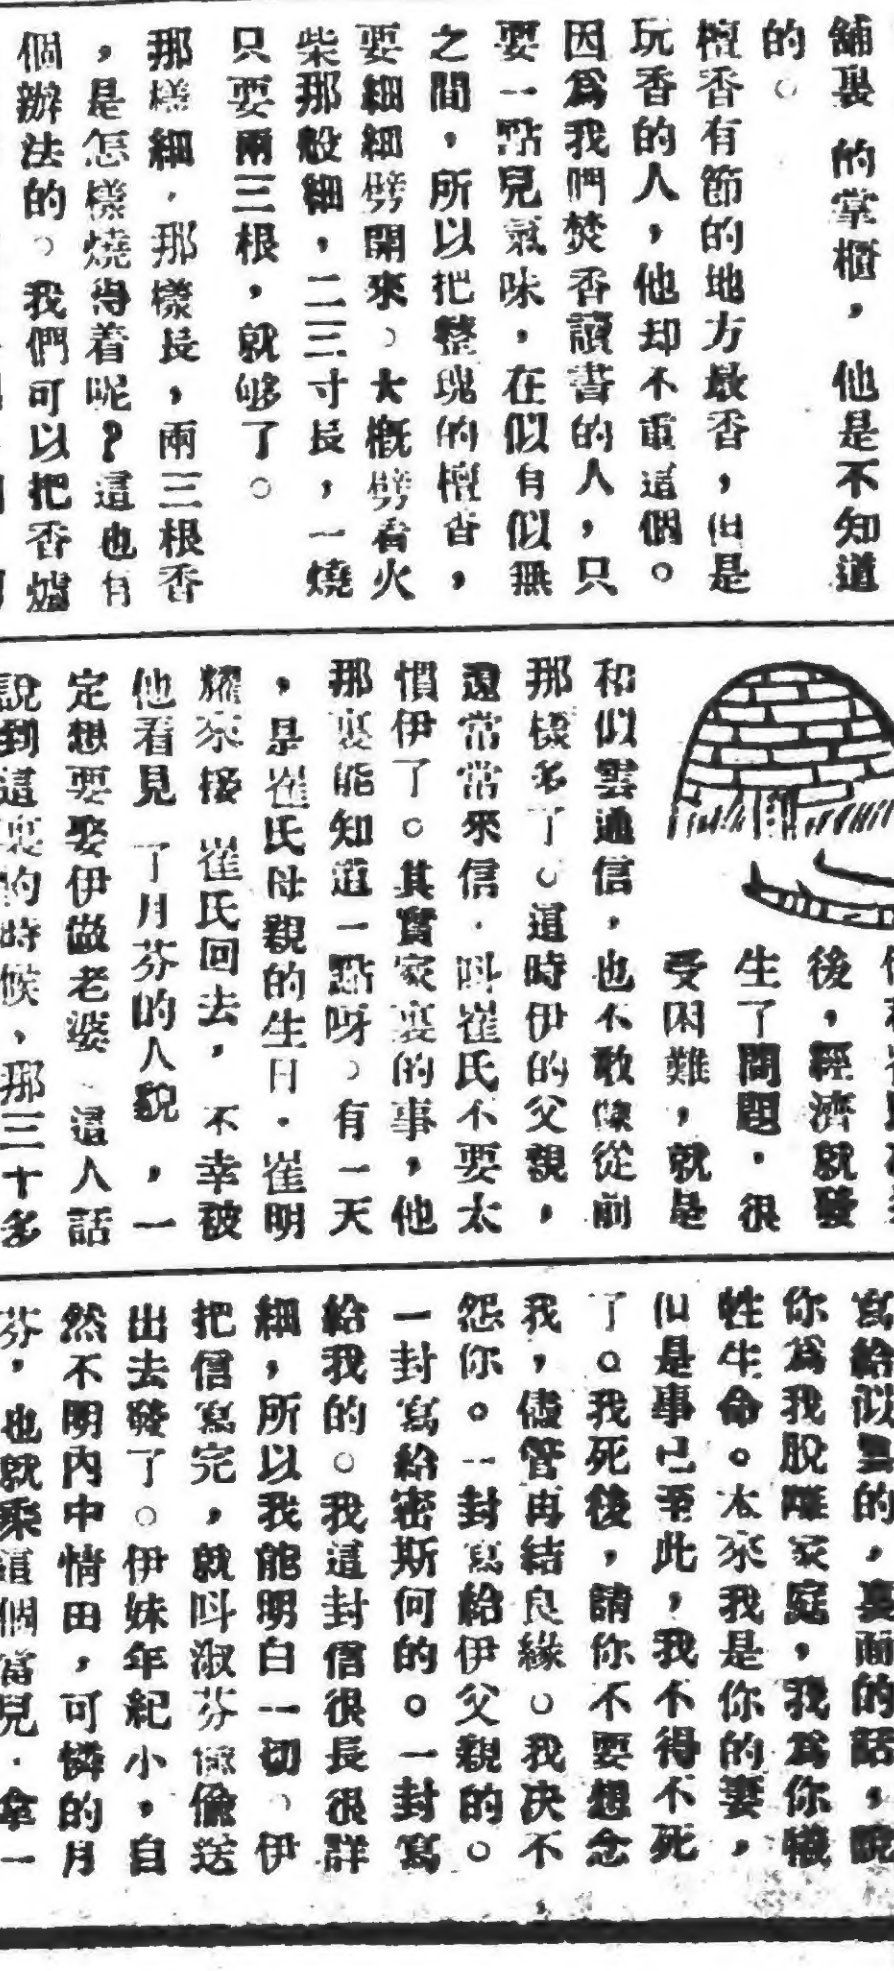 舖裏的掌櫃，他是不知道
的。
檀香有節的地方最香，但是
玩香的人，他却不重這個。
因爲我們焚香讀書的人，只
要一點兒氣味，在似有似無
之間，所以把整塊的檀香，
要細細劈開來。大槪劈着火
柴那般細，二三寸長，一燒
只要兩三根，就够了。
那樣細，那樣長，兩三根香
，是怎樣燒得着呢？這也有
個辦法的。我們可以把香爐
後，經濟就發
生了問題，很
受困難，就是
和似雲通信，也不敢像從前
那樣多了。這時伊的父親，
還常常來信，叫崔氏不要太
慣伊了。其實家裏的事，他
那裏能知道一點呀。有一天
，是崔氏母親的生日，崔明
耀來接崔氏回去，不幸被
他看見了月芬的人貌，一
定想要娶伊做老婆、這人話
說到這裏的時候，那三十多
寫給似雲的，裏面的話，說
你爲我脫離家庭，我爲你犧
牲生命。本來我是你的妻，
但是事已至此，我不得不死
了。我死後，請你不要想念
我，儘管再結良緣。我决不
怨你。一封寫給伊父親的。
一封寫給密斯何的。一封寫
給我的。我這封信很長很詳
細，所以我能明白一切。伊
把信寫完，就叫淑芬偷送
出去發了。伊妹年紀小，自
然不明內中情田，可憐的月
芬，也就乘這個當兒，拿一